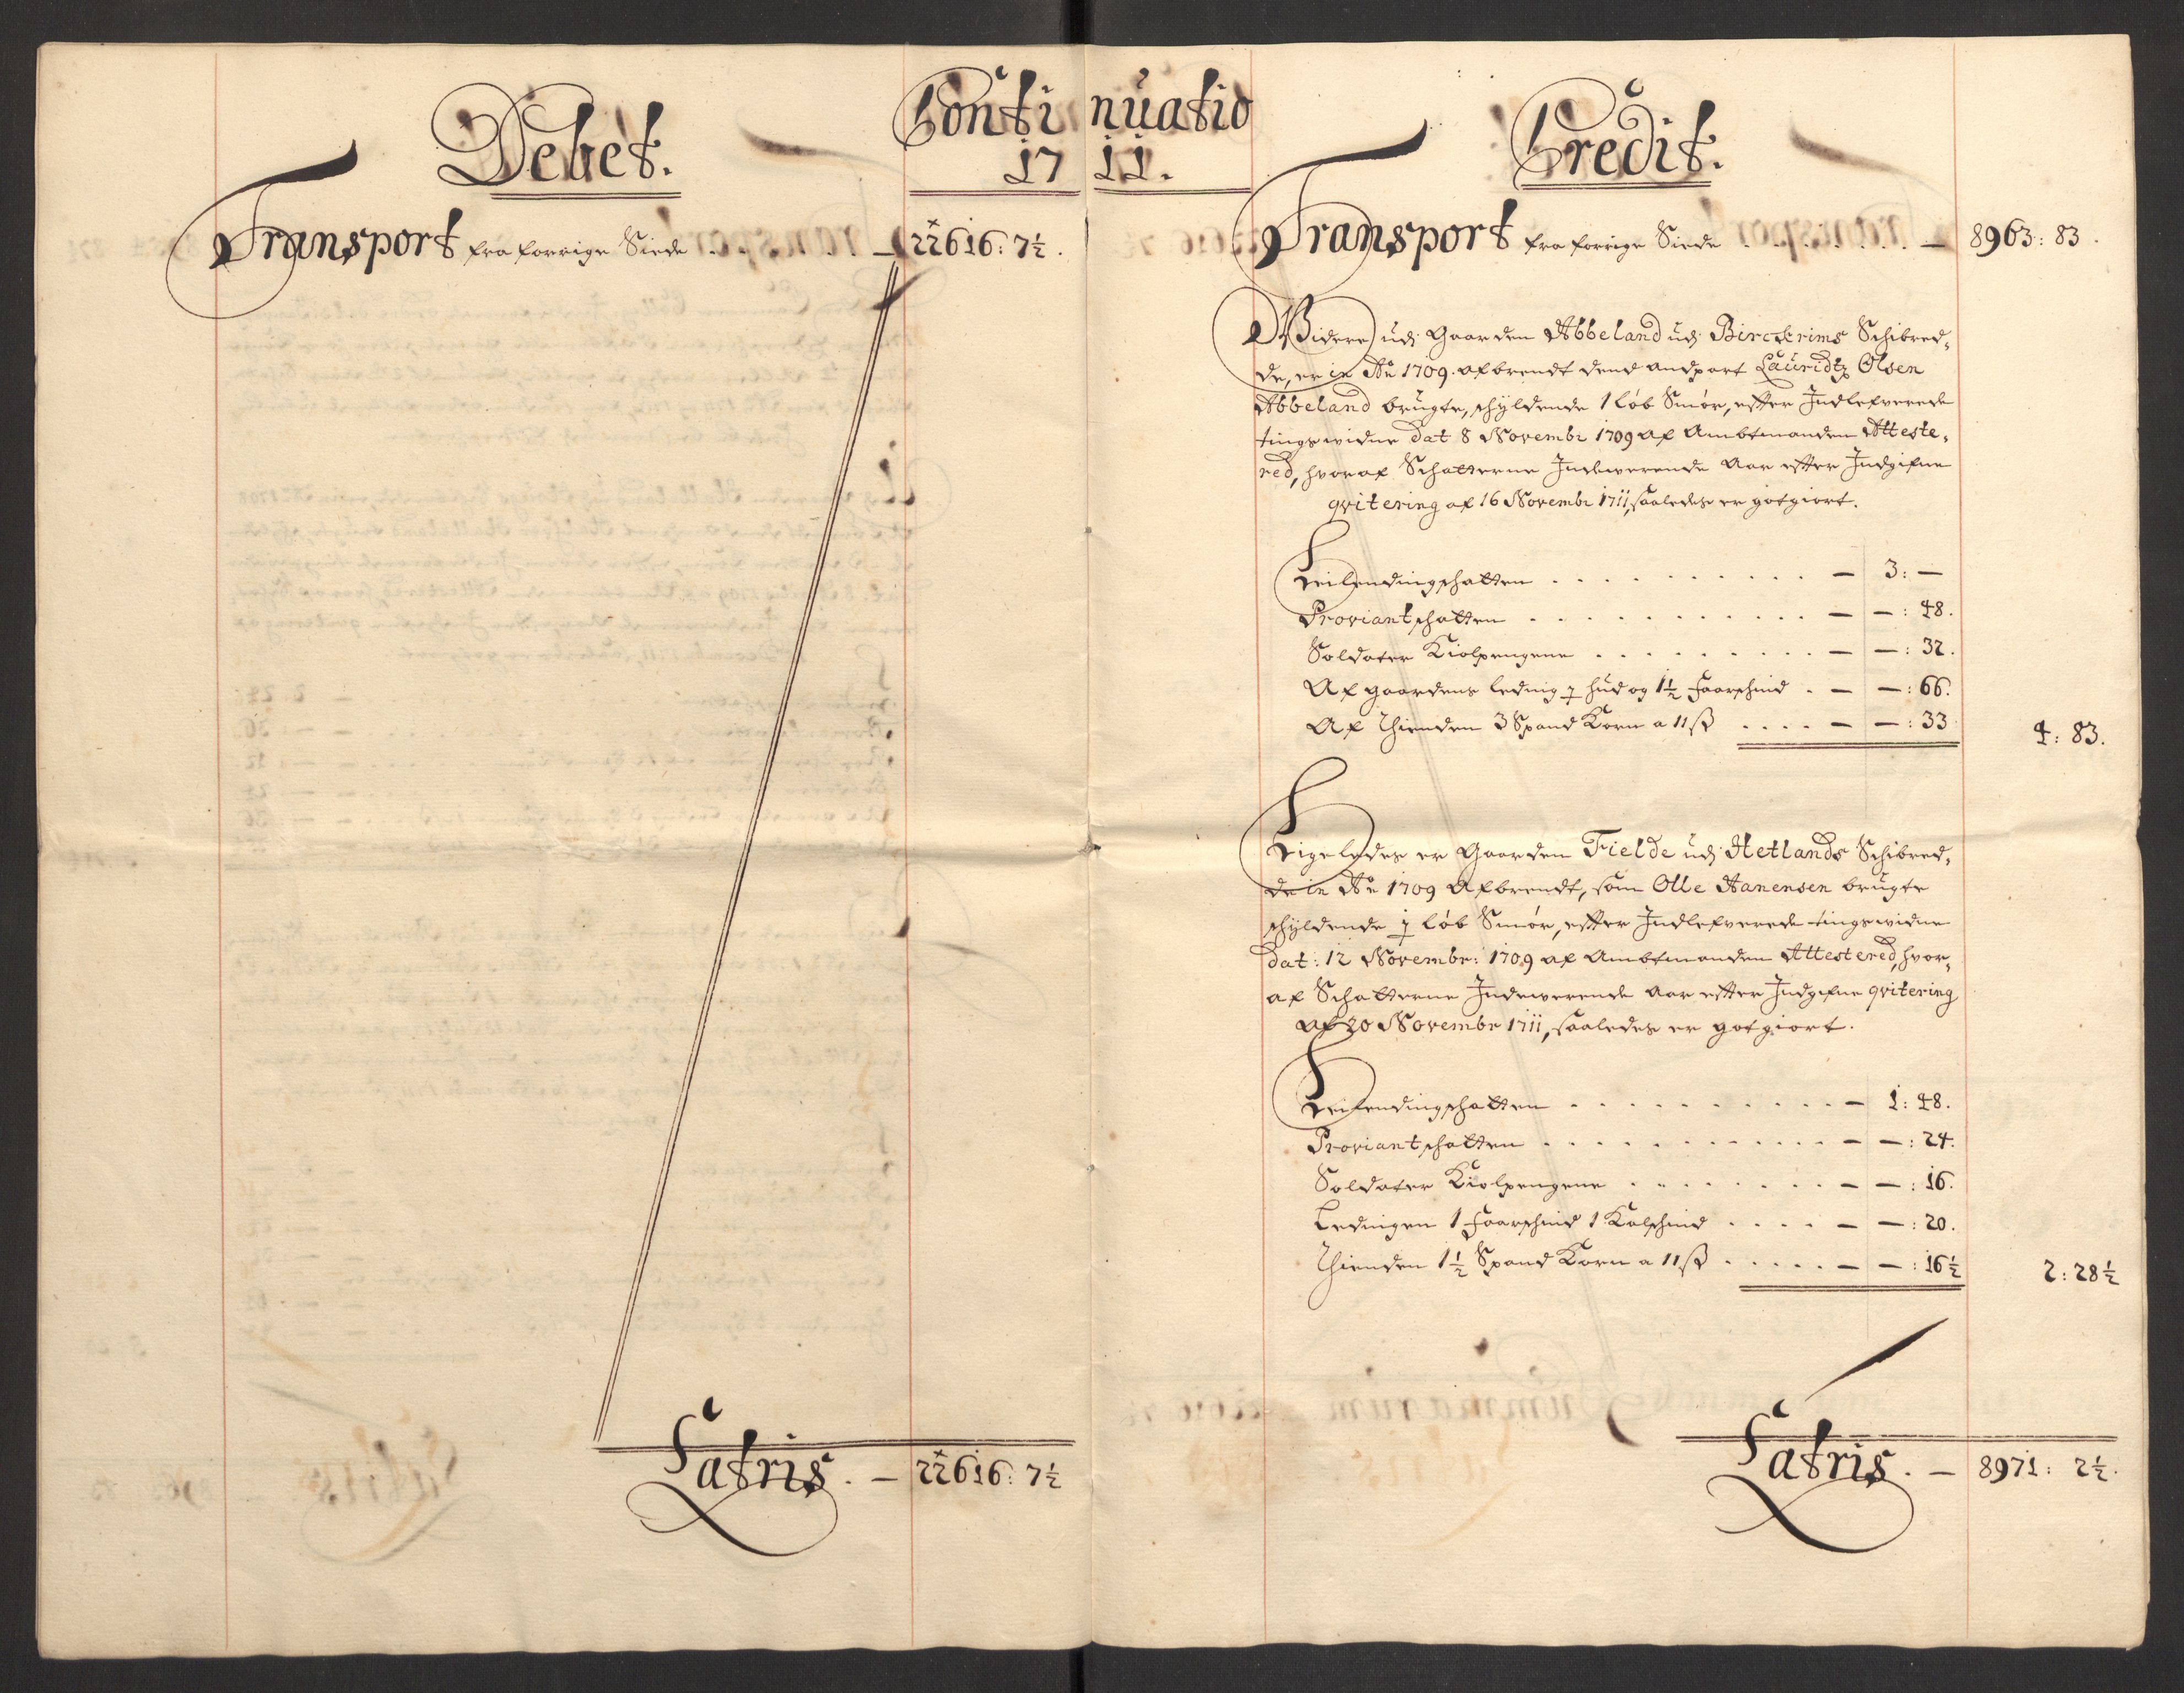 Continuatio
1711.
Debet.
Transport fra forrige Siede . . . . . — 22616: 7½.
Latris. — 22616: 7½
Credit.
Transport fra forrige Siede . . . . . . . — 8963: 83.
Widere udj Gaarden Abbeland udj Birckrims Schibred,
de, er in Ao 1709. afbrendt dend andpart Lauridtz Olsen
Abbeland brugte, schyldende 1 Løb Smør, efter Indlefverede
tingswidne dat 8 Novembr 1709 af Ambtmanden Atteste,
red, hvoraf Schatterne Indewerende Aar efter Indgifne
qvitering af 16 Novembr 1711, saaledes er gotgiort.
Leilendingschatten . . . . . . . . . . — 3: —
Proviantschatten . . . . . . . . . . . — —: 48.
Soldater Kiolpengene . . . . . . . . . — —: 32.
Af gaardens leding ½ hud og 1½ faarschind . — —: 66.
Af Thienden 3 Spand Korn a 11 ß . . . . — —: 33
4: 83.
Ligeledes er Gaarden Fielde udj Hetlands Schibred,
de in Ao 1709 Afbrendt, som Olle Hanensen brugte
schyldende ½ Løb Smør, efter Indlefverede tingswidne
dat: 12 Novembr: 1709 af Ambtmanden Attestered, hvor,
af Schatterne Indewerende Aar efter Indgifne qvitering
af 20 Novembr 1711, saaledes er gotgiort.
Leilendingschatten . . . . . . . . . . . — 1: 48.
Proviantschatten . . . . . . . . . . . . — —: 24.
Soldater Kiolpengene . . . . . . . . — —: 16.
Ledingen 1 faarschind 1 Kalschind . . . . — —: 20.
Thienden 1½ Spand Korn a 11 ß . . . . . — —: 16½
2: 28½
Latris. — 8971: 2½.